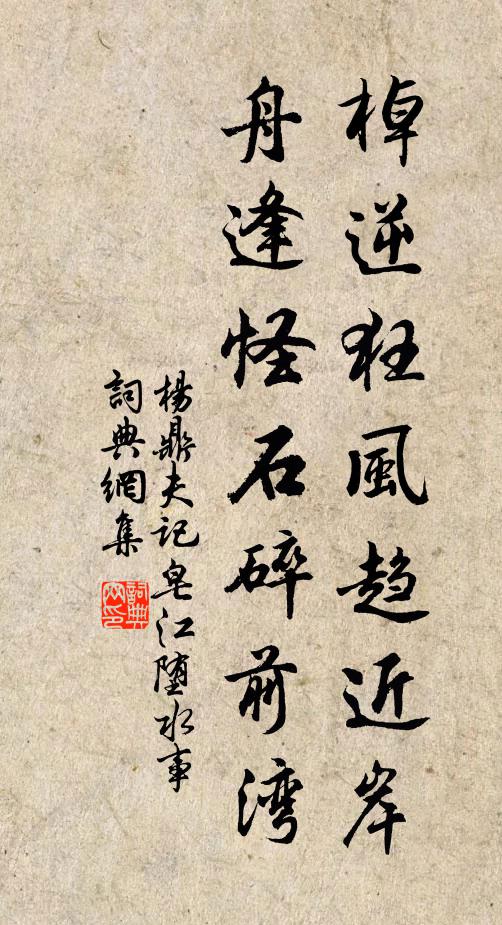 棹逆狂風趋近岸
舟逢怪石碎前湾
楊鼎夫记皂江堕水事
詞典網集
詞典
网印